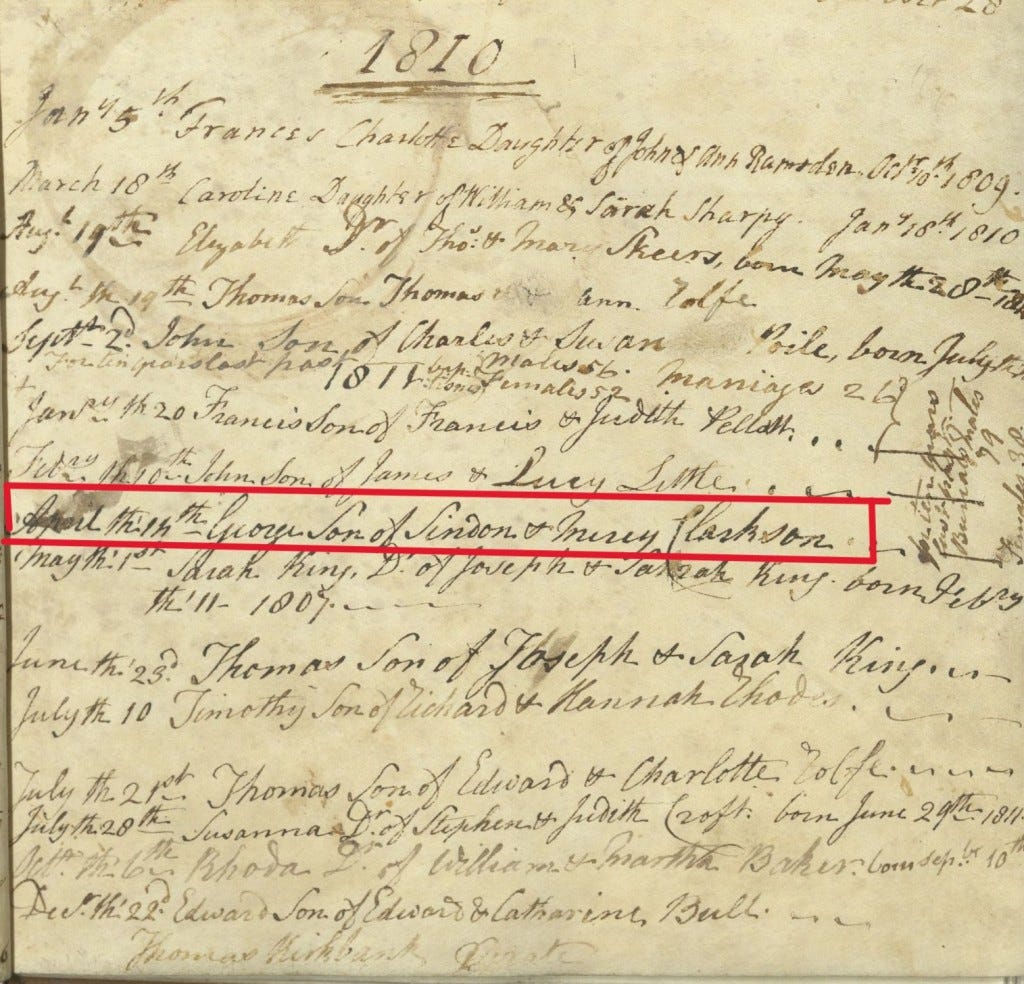 1810
Jany 5th Frances Charlotte Daughter of John & Ann Ramsden. Octr 10th 1809.
March 18th Caroline Daughter of William & Sarah Sharpy. Jany 18th 1810
Augt 19th Elizabeth Dr of Thos & Mary Skeers, born May th 28th
Augt th 19th Thomas Son Thomas & ann. Rolfe
Septr 2d John Son of Charles & Susan Poile, born July th
For ten years last past 1811 males 56. females 52 mariages 26
Janry th 20 Francis Son of Francis & Judith Pellett...
Febry th 10th John Son of James & Lucy Little
April th 14th George Son of Sindon & Mercy Clarkson
May th 1st Sarah King. Dr of Joseph & Sarah King. born Febry
th 11 - 1807.
June th 23d Thomas Son of Joseph & Sarah King.
July th 10 Timothy Son of Richard & Hannah Rhodes.
July th 21st Thomas Son of Edward & Charlotte Rolfe.
July th 28th Susanna Dr of Stephen & Judith Croft. born June 29th 1811.
Octr th 6th Rhoda Dr of William & Martha Baker. born Sepbr 10th
Decr th 22d Edward Son of Edward & Catharine Bull.
Thomas Kirkbank Curate